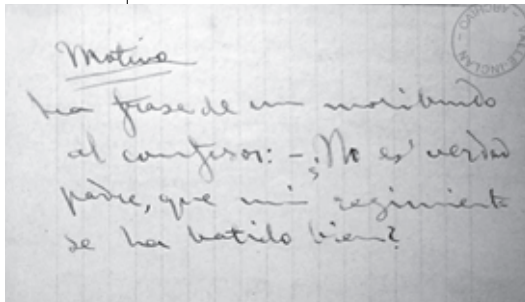 Motivo
La frase de un moribundo
al confesor: – ¿No es verdad
padre, que mi regimiento
se ha batido bien?
ARCHIVO VALLE-INCLÁN